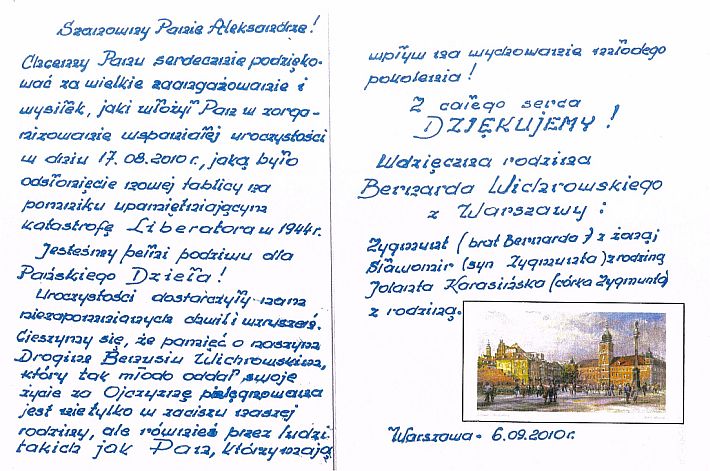 Szanowny Panie Aleksandrze!
Chcemy Panu serdecznie podzięko-
wać za wielkie zaangażowanie i
wysiłek, jaki włożył Pan w zorga-
nizowanie wspaniałej uroczystości
w dniu 17.08.2010 r., jaką było
odsłonięcie nowej tablicy na
pomniku upamiętniającym
katastrofę Liberatora w 1944r.
Jesteśmy pełni podziwu dla
Pańskiego Dzieła!
Uroczystości dostarczyły nam
niezapomnianych chwil i wzruszeń.
Cieszymy się, że pamięć o naszym
Drogim Beniusiu Wichrowskim,
który tak młodo oddał swoje
życie za Ojczyznę pielęgnowana
jest nie tylko w zaciszu naszej
rodziny, ale również przez ludzi
takich jak Pan, którzy mają
wpływ na wychowanie młodego
pokolenia!
Z całego serca
DZIĘKUJEMY!
Wdzięczna rodzina
Bernarda Wichrowskiego
z Warszawy:
Zygmunt (brat Bernarda) z żoną
Sławomir (syn Zygmunta) z rodziną
Jolanta Karasińska (córka Zygmunta)
z rodziną.
Warszawa - 6.09.2010r.